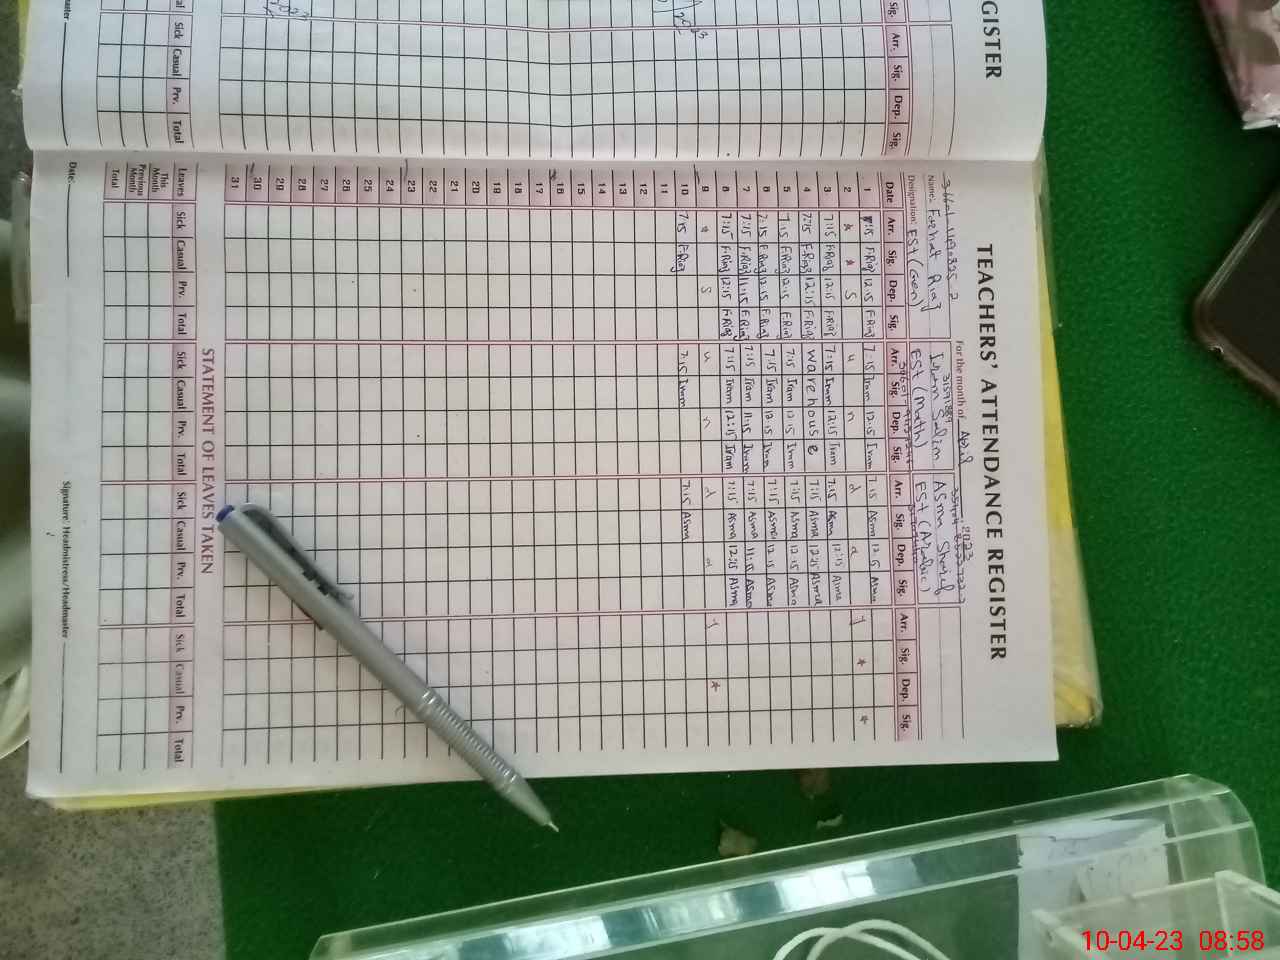 GISTER
Sig. Arr. Sig. Dep. Sig.
2023
2023
Sick Casual Prv. Total
TEACHERS' ATTENDANCE REGISTER
For the month of April 2023
Name: Farhat Riaz Iram Salim Asma Sharif
Designation: EST (Gen) EST (Math) EST (Arabic)
Date Arr. Sig. Dep. Sig. Arr. Sig. Dep. Sig. Arr. Sig. Dep. Sig. Arr. Sig. Dep. Sig.
1 7:15 F.Riaz 12:15 F.Riaz 7:15 Iram 12:15 Iram 7:15 Asma 12:15 Asma
2 * * S u n d a y * *
3 7:15 F.Riaz 12:15 F.Riaz 7:15 Iram 12:15 Iram 7:15 Asma 12:15 Asma
4 7:15 F.Riaz 12:15 F.Riaz Warehouse 7:15 Asma 12:15 Asma
5 7:15 F.Riaz 12:15 F.Riaz 7:15 Iram 12:15 Iram 7:15 Asma 12:15 Asma
6 7:15 F.Riaz 12:15 F.Riaz 7:15 Iram 12:15 Iram 7:15 Asma 12:15 Asma
7 7:15 F.Riaz 11:15 F.Riaz 7:15 Iram 11:15 Iram 7:15 Asma 11:15 Asma
8 7:15 F.Riaz 12:15 F.Riaz 7:15 Iram 12:15 Iram 7:15 Asma 12:15 Asma
9 * S u n d a y *
10 7:15 F.Riaz 7:15 Iram 7:15 Asma
11
12
13
14
15
16
17
18
19
20
21
22
23
24
25
26
27
28
29
30
31
STATEMENT OF LEAVES TAKEN
Leaves Sick Casual Prv. Total Sick Casual Prv. Total Sick Casual Prv. Total Sick Casual Prv. Total
This Month
Previous Month
Total
Date: Signature: Headmistress/Headmaster
10-04-23 08:58